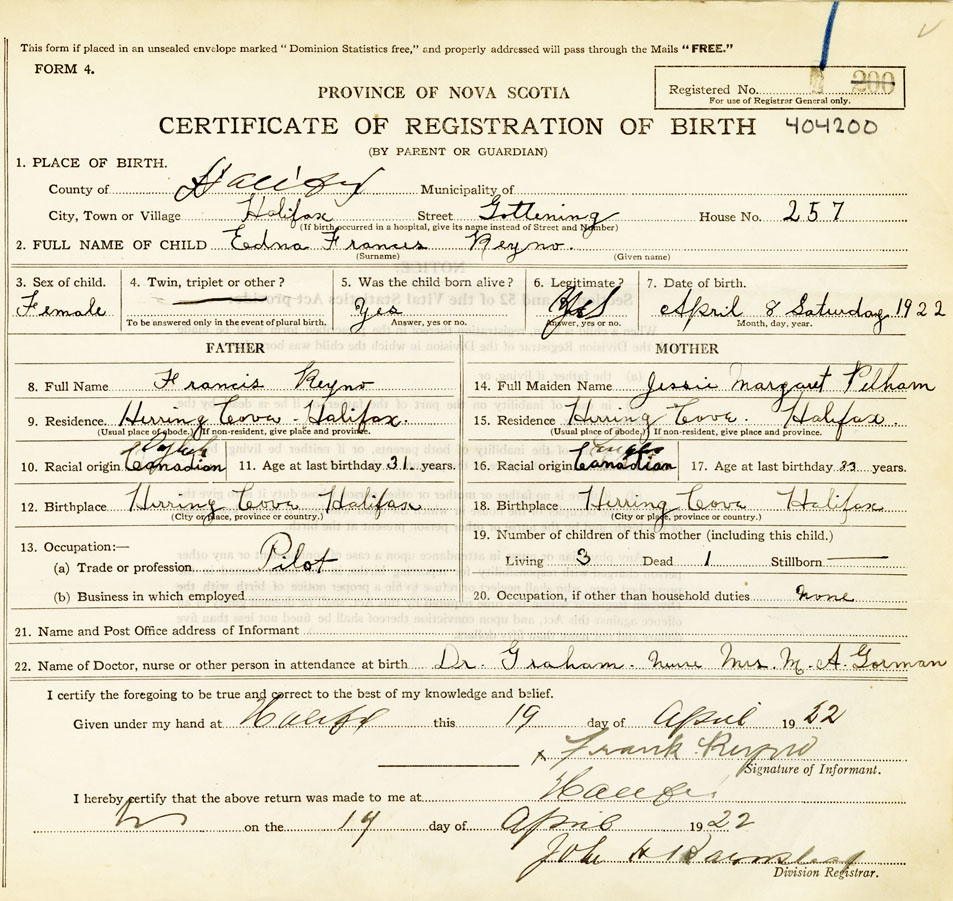 This form if placed in an unsealed envelope marked "Dominion Statistics free," and properly addressed will pass through the Mails "FREE."
FORM 4.
Registered No. 200
For use of Registrar General only.
PROVINCE OF NOVA SCOTIA
CERTIFICATE OF REGISTRATION OF BIRTH 404200
(BY PARENT OR GUARDIAN)
1. PLACE OF BIRTH.
County of Halifax Municipality of
City, Town or Village Halifax Street Gottening House No. 257
(If birth occurred in a hospital, give its name instead of Street and Number)
2. FULL NAME OF CHILD Edna Frances Reyno.
(Surname) (Given name)
3. Sex of child. 4. Twin, triplet or other? 5. Was the child born alive? 6. Legitimate? 7. Date of birth.
Female Yes Yes April 8 Saturday 1922
To be answered only in the event of plural birth. Answer, yes or no. Answer, yes or no. Month, day, year.
FATHER MOTHER
8. Full Name Francis Reyno 14. Full Maiden Name Jessie Margaret Pelham
9. Residence Herring Cove - Halifax. 15. Residence Herring Cove Halifax.
(Usual place of abode.) If non-resident, give place and province. (Usual place of abode.) If non-resident, give place and province.
10. Racial origin Canadian 11. Age at last birthday 31 years. 16. Racial origin Canadian 17. Age at last birthday 33 years.
12. Birthplace Herring Cove Halifax 18. Birthplace Herring Cove Halifax
(City or place, province or country.) (City or place, province or country.)
13. Occupation:— 19. Number of children of this mother (including this child.)
(a) Trade or profession Pilot Living 3 Dead 1 Stillborn
(b) Business in which employed 20. Occupation, if other than household duties none
21. Name and Post Office address of Informant
22. Name of Doctor, nurse or other person in attendance at birth Dr. Graham. Nurse Mrs. M. A. Gorman
I certify the foregoing to be true and correct to the best of my knowledge and belief.
Given under my hand at Halifax this 19 day of April 1922
x Frank Reyno
Signature of Informant.
I hereby certify that the above return was made to me at Halifax
on the 19 day of April 1922
John H Barnstead
Division Registrar.